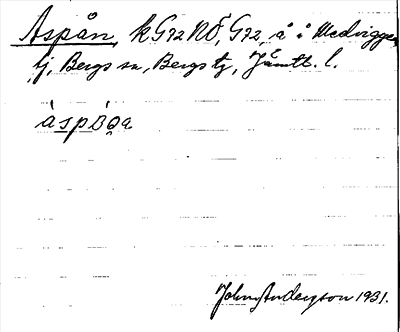 Aspån, k G72 NÖ, G72, å i Medvigge
tj, Bergs sn, Bergs tg, Jämtl. l.
áspòo̭a
John Anderson 1931.